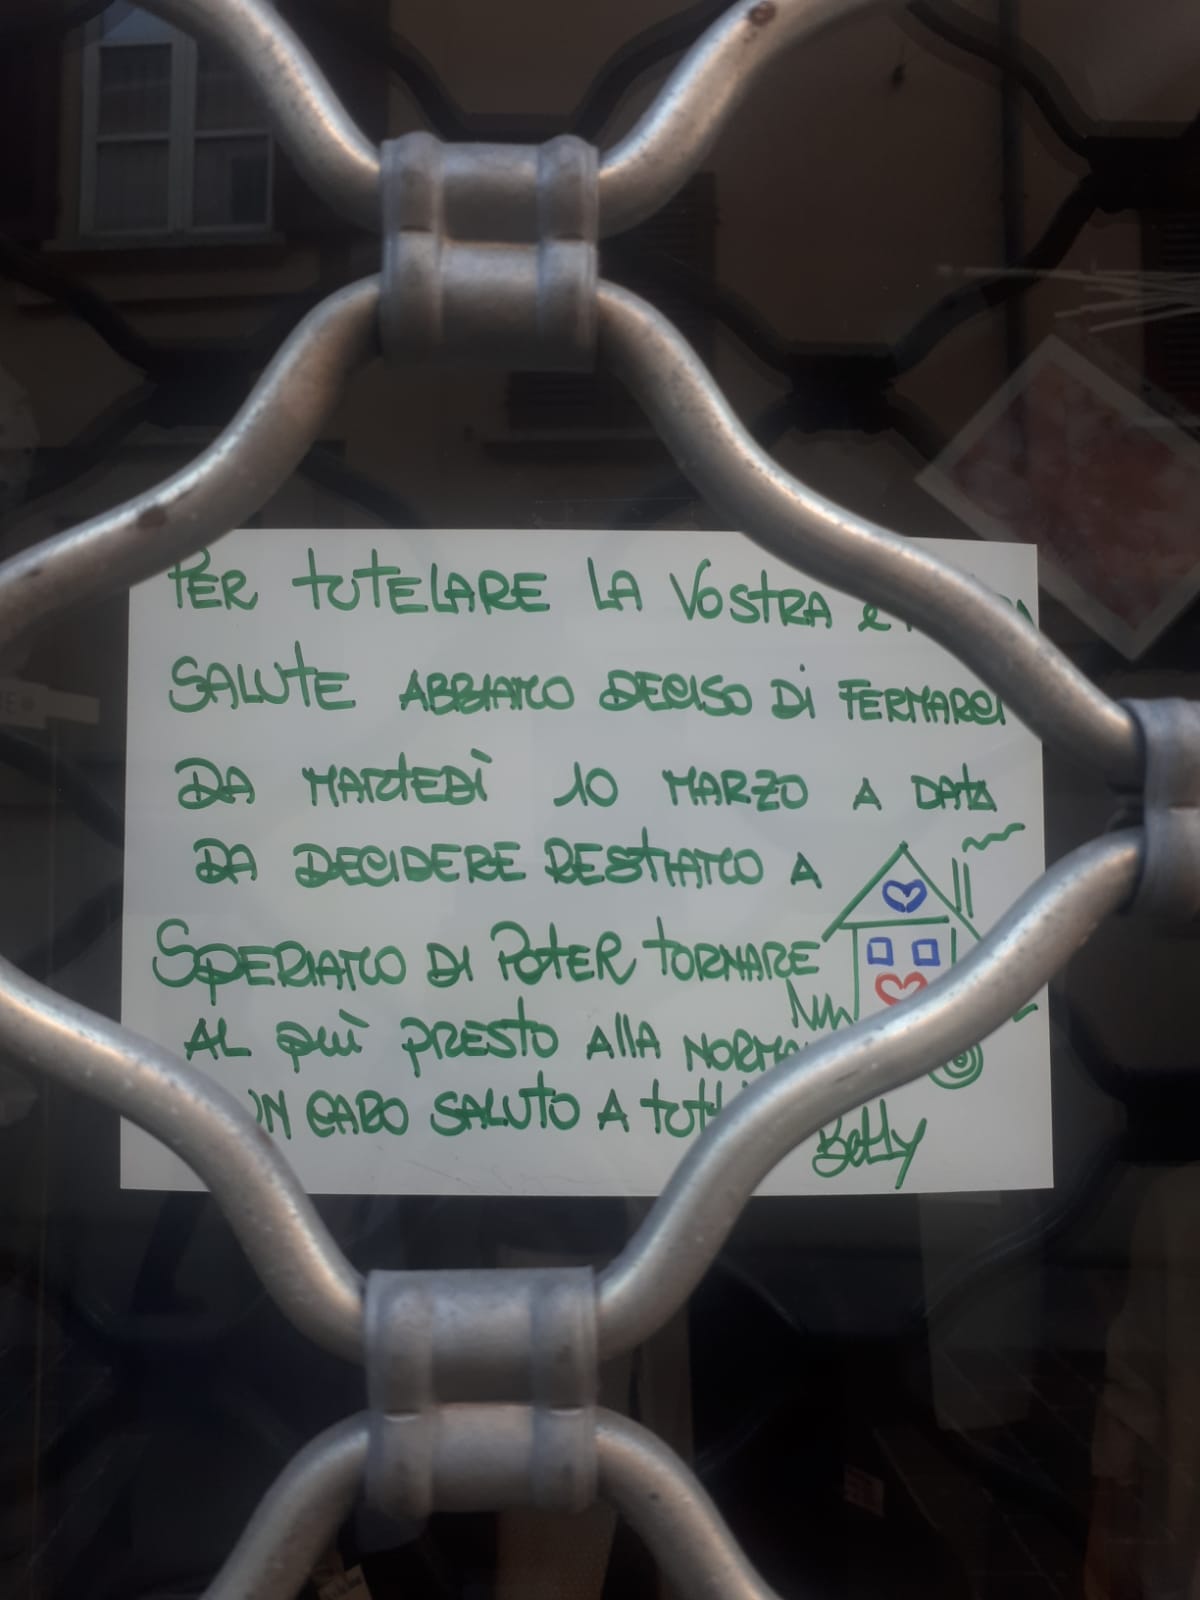 PER TUTELARE LA VOSTRA e
SALUTE ABBIAMO DECISO DI FERMARCI
DA MARTEDÌ 10 MARZO A DATA
DA DECIDERE RESTIAMO A
SPERIAMO DI POTER TORNARE
AL PIÙ PRESTO ALLA
UN CARO SALUTO A TUTTI
Betty